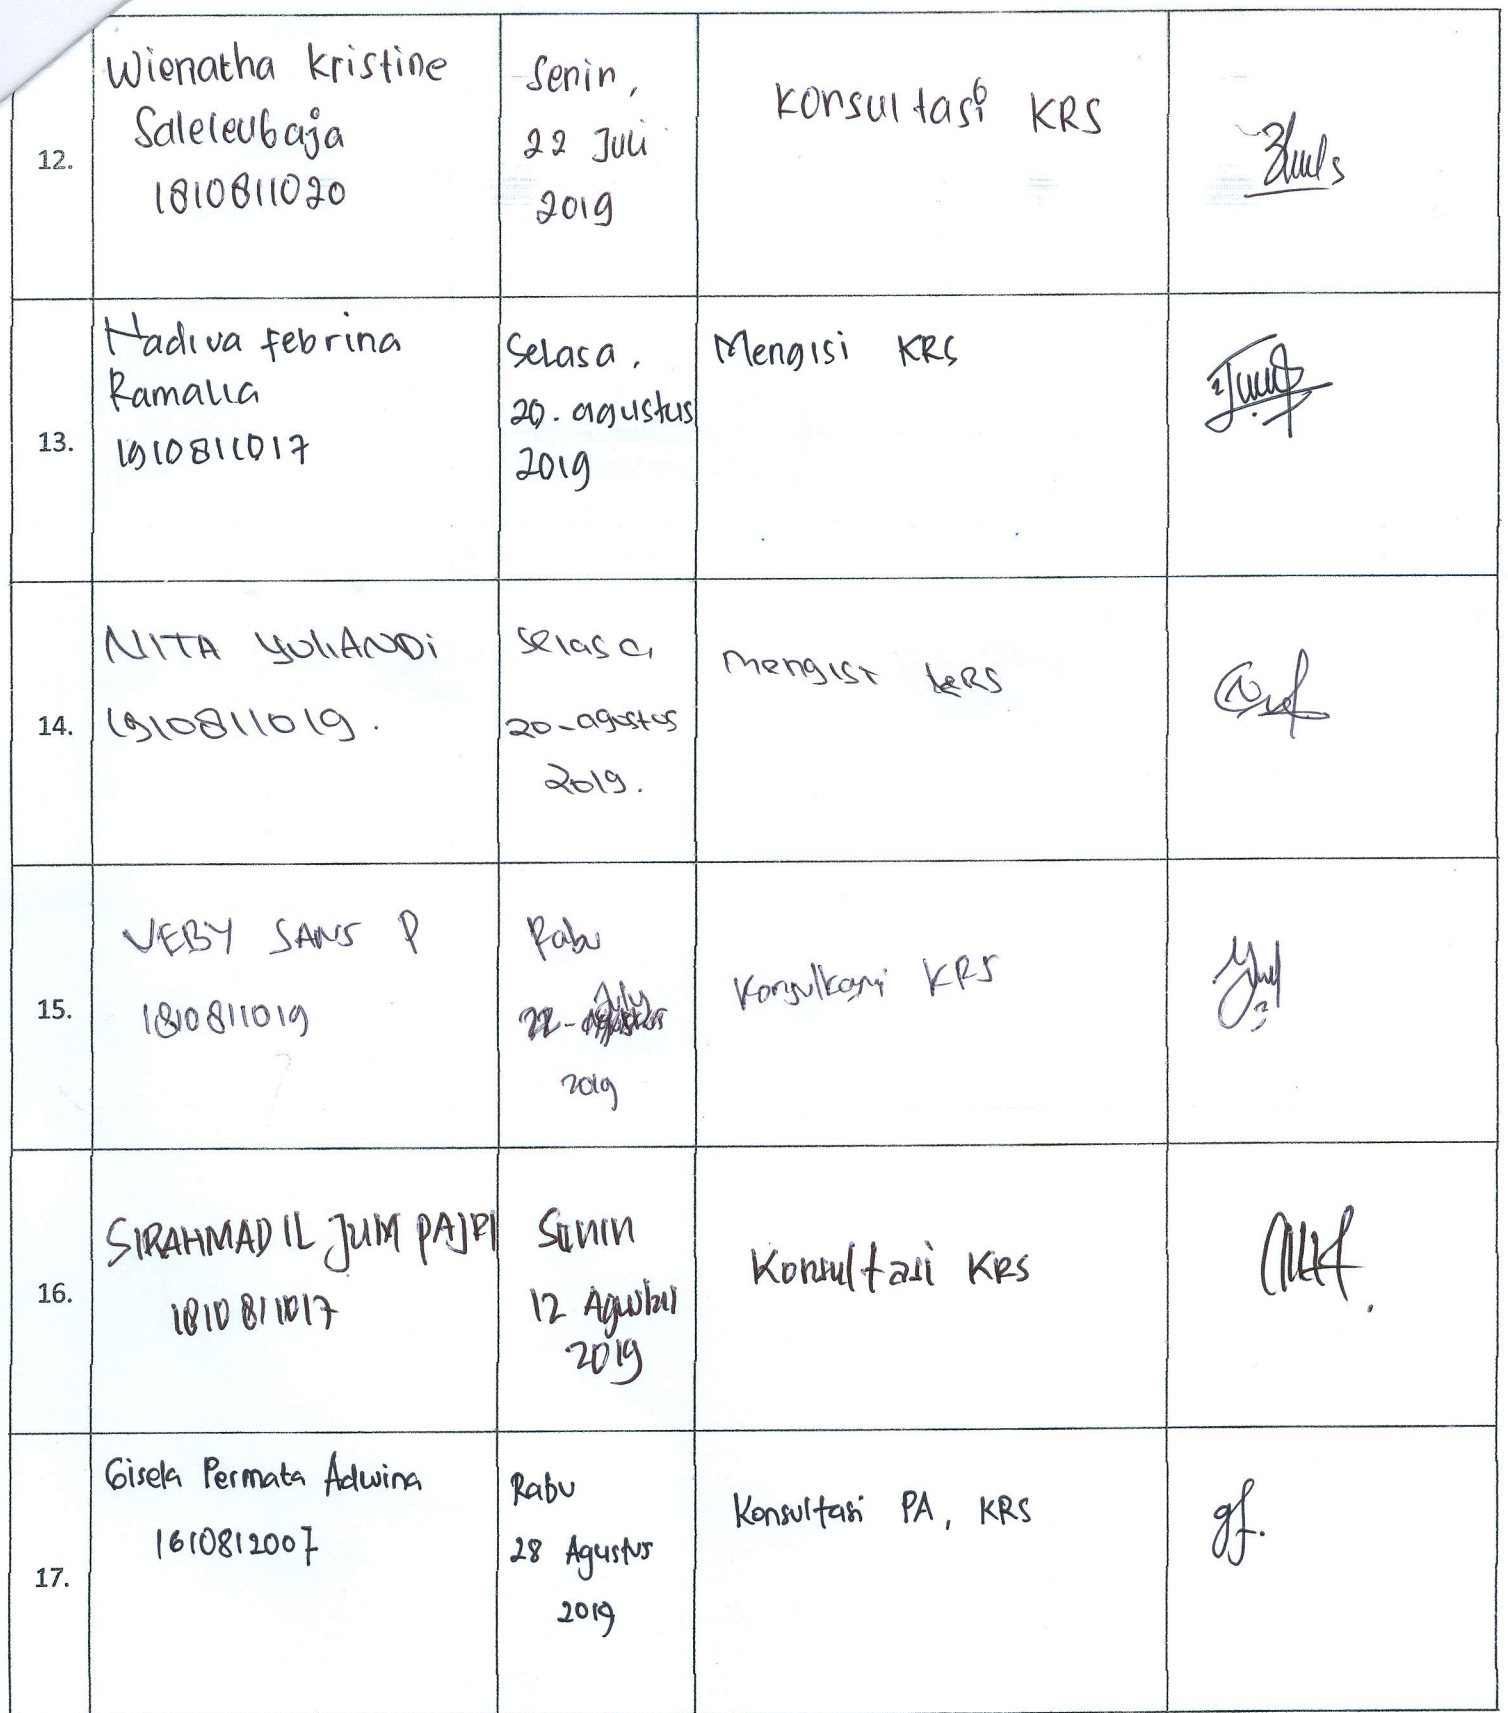 12.
Wienatha Kristine
Saleleubaja
1810811020
Senin,
22 Juli
2019
Konsultasi KRS
13.
Nadiva Febrina
Ramalia
1910811017
Selasa,
20. agustus
2019
Mengisi KRS
14.
NITA YULIANDI
1910811019.
Selasa
20-agustus
2019.
Mengisi KRS
15.
VEBY SANS P
1810811019
Rabu
22- July
2019
Konsultasi KRS
16.
SIRAHMADIL JUM PAJRI
1810811017
Senin
12 Agustus
2019
Konsultasi KRS
17.
Gisela Permata Adwina
1610812007
Rabu
28 Agustus
2019
Konsultasi PA, KRS